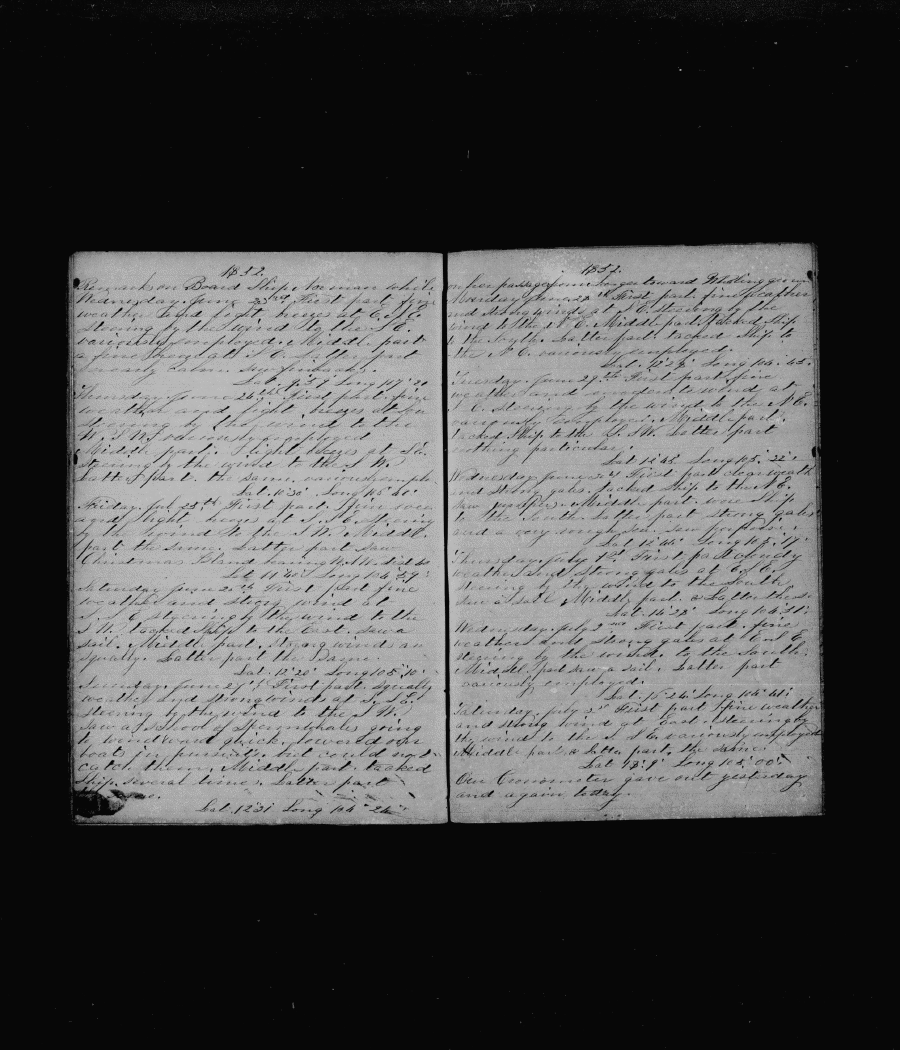 1852.
Remarks on Board Ship Norman while
Wednesday June 23rd First part fine
weather and light breezes at E.S.E.
steering by the wind to the S.E.
variously employed. Middle part
a fine breeze at S.E. Latter part
nearly calm. saw finbacks.
Lat 9 Long 107 20
Thursday June 24th first part fine
weather and light breezes at
steering by the wind to the
W.S.W. variously employed
Middle part. light breezes at S.E.
steering by the wind to the S.W.
Latter part. the same. variously emplo
Lat. 10 30 Long 105
Friday June 25th First part. fine wea
and light breeze at S.S.E. steering
by the wind to the S.W. Middle
part the same. Latter part saw
Christmas Island bearing W.S.W. dist 40
Lat 11 Long 104 59
Saturday June 26th First part fine
weather and strong wind at
S.S.E. steering by the wind to the
S.W. tacked Ship to the East. saw a
sail. Middle part. strong winds an
squally. Latter part the Same.
Lat. 12 20 Long 105 10
Sunday. June 27th First part. squally
weather and strong winds at S.S.E.
steering by the wind to the S.W.
saw a school of Spermwhales going
to windward thick. lowered our
boats in pursuit but could not
catch them. Middle part. tacked
ship several times. Latter part
same.
Lat. 12 31 Long 104 24
1852.
on her passage from toward Whaling ground
Monday June 28th First part. fine weather
and strong winds at S.E. steering by the
wind to the N.E. Middle part tacked ship
to the Southd. Latter part tacked Ship to
the N.E. variously employed.
Lat. 12 29 Long 104 45
Tuesday. June 29th First part fine
weather and wind at
S.E. steering by the wind to the N.E.
variously employed. Middle part.
tacked Ship to the S.S.W. Latter part
nothing particular.
Lat 12 45 Long 105 22
Wednesday June First part clear weath
and strong gales. tacked ship to the N.E.
saw porpoises. Middle part. wore Ship
to the South. Latter part strong gales
and a very rough sea. saw porpoise.
Lat 12 45 Long 105
Thursday. July 1st First part cloudy
weather and strong gales at E.S.E.
steering by the wind to the South
saw a sail. Middle part. & Latter the s
Lat. 14 22 Long 104
Wednesday. July 2nd First part. fine
weather and strong gales at E.S.E.
steering by the wind. to the South.
Middle part saw a sail. Latter part
variously employed.
Lat. 15 24 Long 104
Saturday. July 3d First part fine weather
and strong wind at East. steering by
the wind to the S.S.E. variously employed
Middle part & Latter part. the same.
Lat 18 9 Long 105 00
Our Cronometer gave out yesterday
and again today.